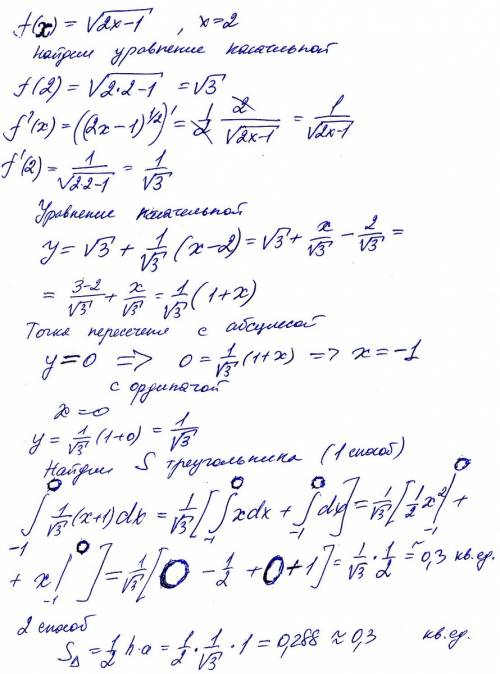 f(x) = √(2x-1) , x=2
Найдем уравнение касательной
f(2) = √(2·2-1) = √3
f'(x) = ((2x-1)^1/2)' = 1/2 2/√(2x-1) = 1/√(2x-1)
f'(2) = 1/√(2·2-1) = 1/√3
Уравнение касательной
y = √3 + 1/√3 (x-2) = √3 + x/√3 - 2/√3 =
= 3-2/√3 + x/√3 = 1/√3 (1+x)
Точка пересечения с абсциссой
y=0 => 0 = 1/√3 (1+x) => x = -1
с ординатой
x=0
y = 1/√3 (1+0) = 1/√3
Найдем S треугольника (1 способ)
∫₋₁⁰ 1/√3 (x+1)dx = 1/√3 [∫₋₁⁰ xdx + ∫₋₁⁰ dx] = 1/√3 [1/2 x² |₋₁⁰ +
+ x |₋₁⁰ ] = 1/√3 [0 - 1/2 + 0 + 1] = 1/√3 · 1/2 ≈ 0,3 кв.ед.
2 способ
S△ = 1/2 h·a = 1/2 · 1/√3 · 1 = 0,288 ≈ 0,3 кв.ед.